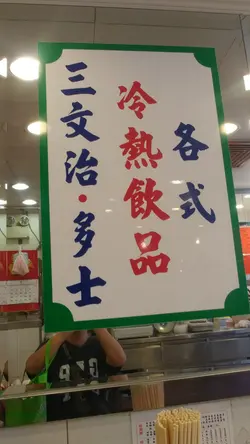 各式
冷熱飲品
三文治·多士